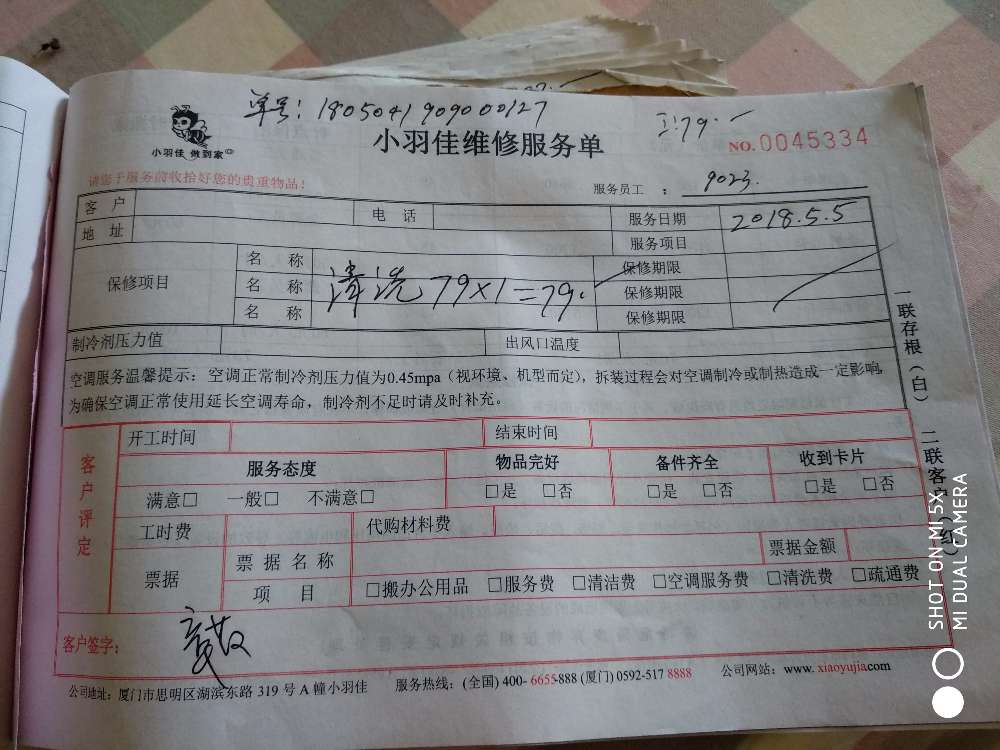 单号：180504190900127
工:79.—
小羽佳 做到家
小羽佳维修服务单
NO.0045334
请您于服务前收拾好您的贵重物品！
服务员工 ： 9023.
客 户 电 话 服务日期 2018.5.5
地 址 服务项目
保修项目 名 称 保修期限
名 称 清洗 79×1=79. 保修期限
名 称 保修期限
制冷剂压力值 出风口温度
空调服务温馨提示：空调正常制冷剂压力值为0.45mpa（视环境、机型而定），拆装过程会对空调制冷或制热造成一定影响，
为确保空调正常使用延长空调寿命，制冷剂不足时请及时补充。
一联存根（白） 二联客户（红）
客户评定
开工时间 结束时间
服务态度 物品完好 备件齐全 收到卡片
满意□ 一般□ 不满意□ □是 □否 □是 □否 □是 □否
工时费 代购材料费
票据 票据名称 票据金额
项 目 □搬办公用品 □服务费 □清洁费 □空调服务费 □清洗费 □疏通费
客户签字：
公司地址: 厦门市思明区湖滨东路 319 号 A 幢小羽佳 服务热线：(全国) 400- 6655-888 (厦门) 0592-517 8888 公司网站：www. xiaoyujia.com
SHOT ON MI 5X
MI DUAL CAMERA